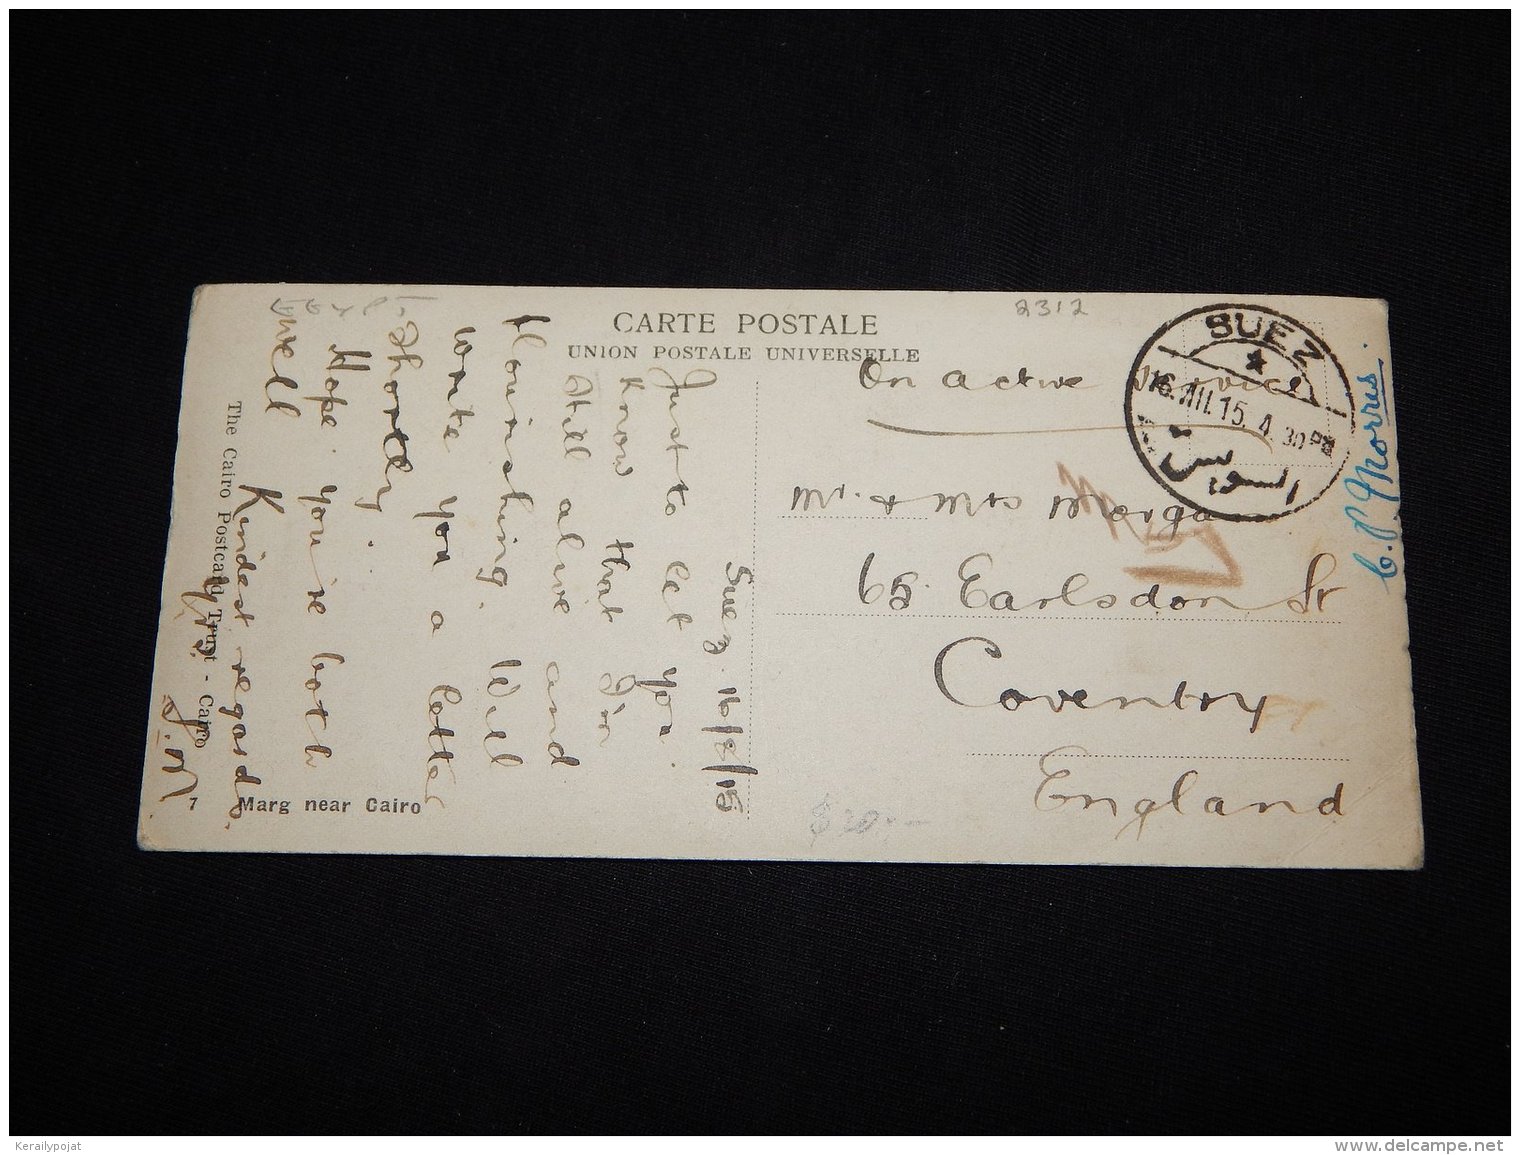 EGYPT
2312
CARTE POSTALE
UNION POSTALE UNIVERSELLE
Suez. 16/8/15
Just to let you
know that I'm
still alive and
flourishing. Will
write you a letter
shortly.
Hope you're both
well
Kindest regards.
Yrs.
The Cairo Postcard Trust - Cairo
7 Marg near Cairo
On active service
SUEZ
16.VIII.15. 4.30 PM
السويس
Mr. & Mrs Morgan
65 Earlsdon St
Coventry
England
C.P. Morris.
Kerailypojat
delcampe.net